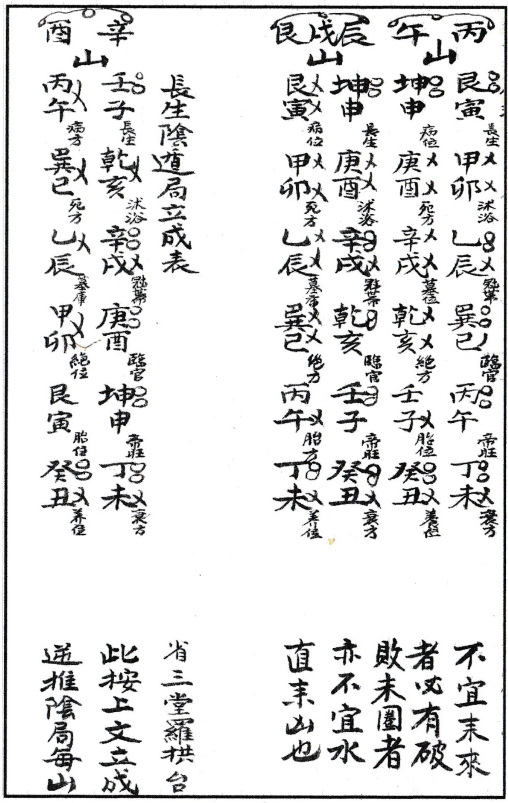 丙午山
艮寅長生甲卯沐浴乙辰冠帶巽巳臨官丙午帝旺丁未衰方
坤申病位庚酉死方辛戌墓位乾亥絕方壬子胎位癸丑養位
辰戌艮山
坤申長生庚酉沐浴辛戌冠帶乾亥臨官壬子帝旺癸丑衰方
艮寅病位甲卯死方乙辰墓庫巽巳絕方丙午胎方丁未养位
不宜未來
者必有破
敗未圍者
亦不宜水
直来凶也
長生陰遁局立成表
省三堂羅拱台
辛酉山
壬子長生乾亥沐浴辛戌冠帶庚酉臨官坤申帝旺丁未衰方
丙午病方巽巳死方乙辰墓庫甲卯絕位艮寅胎位癸丑养位
此按上文立成
逆推陰局每山